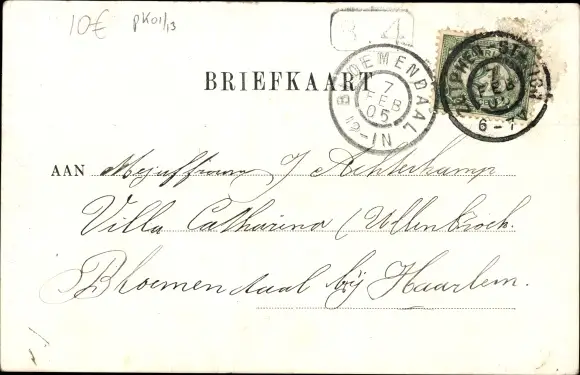 10€ PK01/13
3 4
BLOEMENDAAL
7
FEB
05
12-1N
ZUTPHEN-ST:
7
FEB
05
6-7
BRIEFKAART
AAN Mejuffrouw J Achterkamp
Villa Catharina (Wllenbroek.
Bloemendaal bij Haarlem.